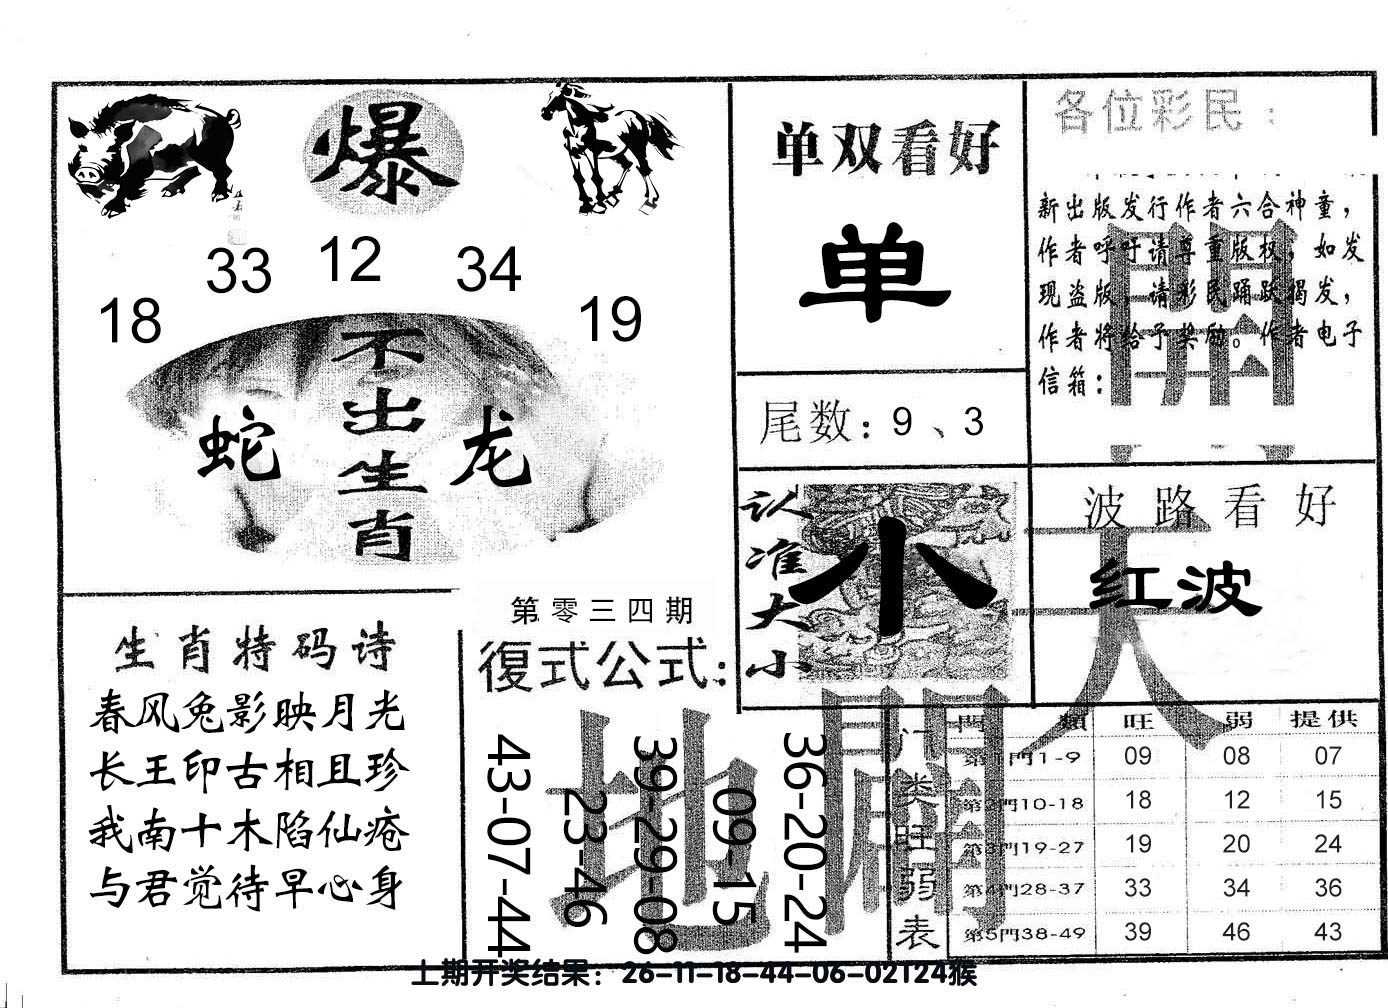 爆
33 12 34
18 19
不出生肖
蛇 龙
单双看好
单
尾数：9、3
各位彩民：
新出版发行作者六合神童，
作者呼吁请尊重版权，如发
现盗版，请彩民踊跃揭发，
作者将给予奖励。作者电子
信箱：
认准大小
小
波路看好
红波
天開
地開
生肖特码诗
春风兔影映月光
长王印古相且珍
我南十木陷仙疮
与君觉待早心身
第零三四期
復式公式：
43-07-44
23-46
39-29-08
09-15
36-20-24
门类旺弱表
門類 旺 弱 提供
第1門1-9 09 08 07
第2門10-18 18 12 15
第3門19-27 19 20 24
第4門28-37 33 34 36
第5門38-49 39 46 43
上期开奖结果：26-11-18-44-06-02T24猴